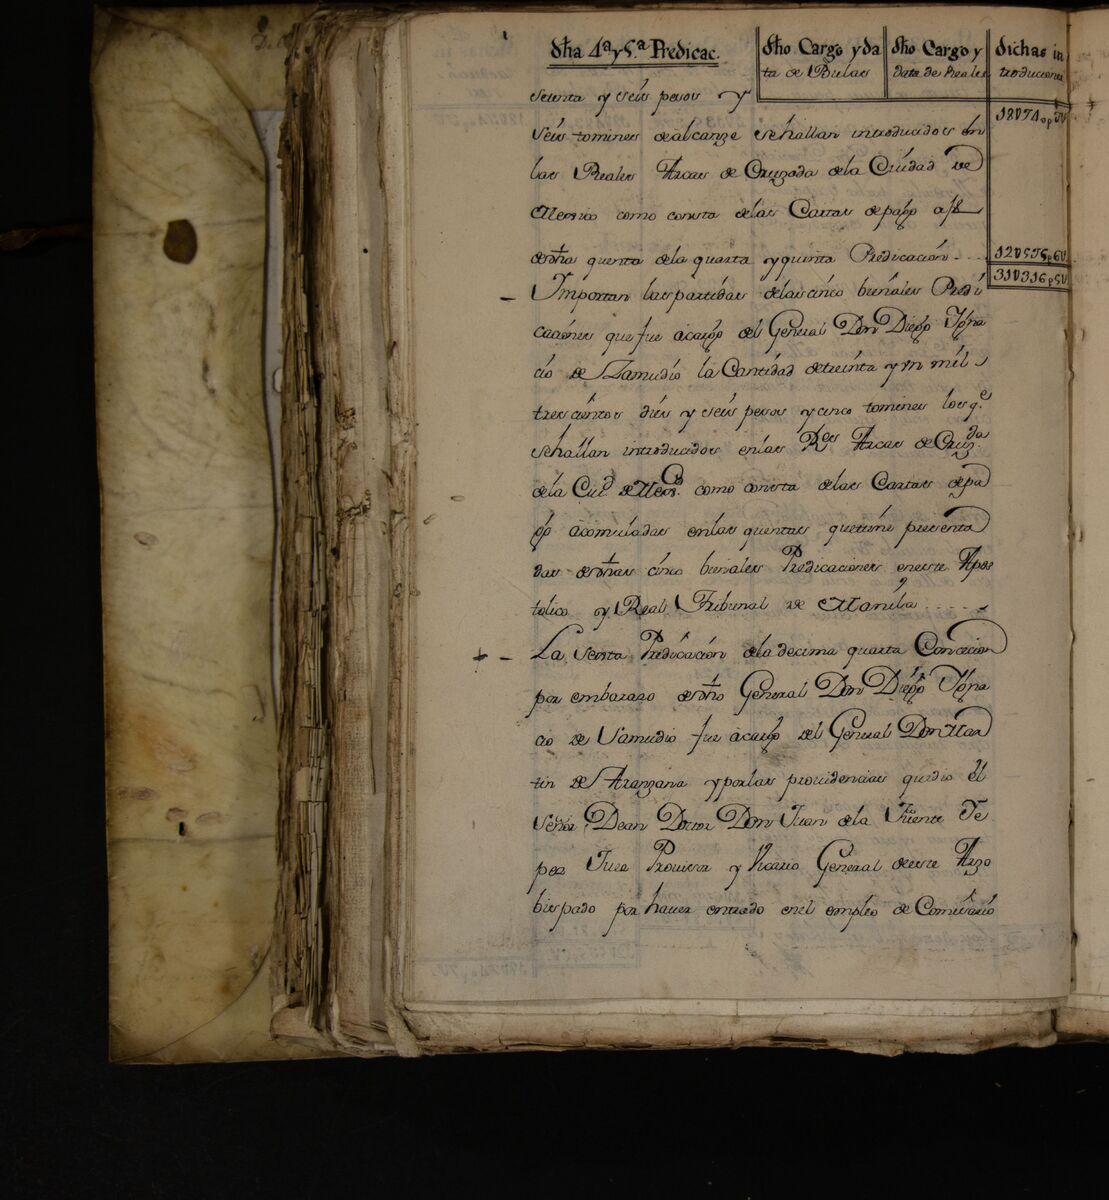 dħa 4ª y 5ª Predicac.
dħo Cargo y da
ta de Bulas
dħo Cargo y
data de Reales
dichas in
troduciones
setenta y seis pesos y
18074
seis tomines de alcanze se hallan introducidos en
las Reales Arcas de Cruzada de la Ciudad de
Mexico como consta de las Cartas de pago
de dħa quenta de la quarta y quinta Predicación
Importan las partidas de las cinco bienales Predi
caciones que fue a cargo del General Don Diego Igna
cio de Zamudio la Cantidad de treinta y vn mil
trescientos diés y seis pesos y cinco tomines los q.e
se hallan introducidos en las R.es Arcas de Cruz.da
de la Ciu.d de Mex.co como consta de las Cartas de pa
go acomuladas en las quentas que tiene presenta
das de dħas cinco bienales Predicaciones en este Apos
tolico y Real Tribunal de Manila
+ La Sexta Predicación de la decima quarta Concecion
por embarazo de dħo General Don Diego Igna
cio de Samudio fue a cargo del General Don Mar
tin de Aranzana y por las providencias que dio el
Señor Dean Doctor Don Juan de la Fuente Ye
pez Juez Provisor y Vicario General de este Arzo
bispado por haver entrado en el empleo de Comisario